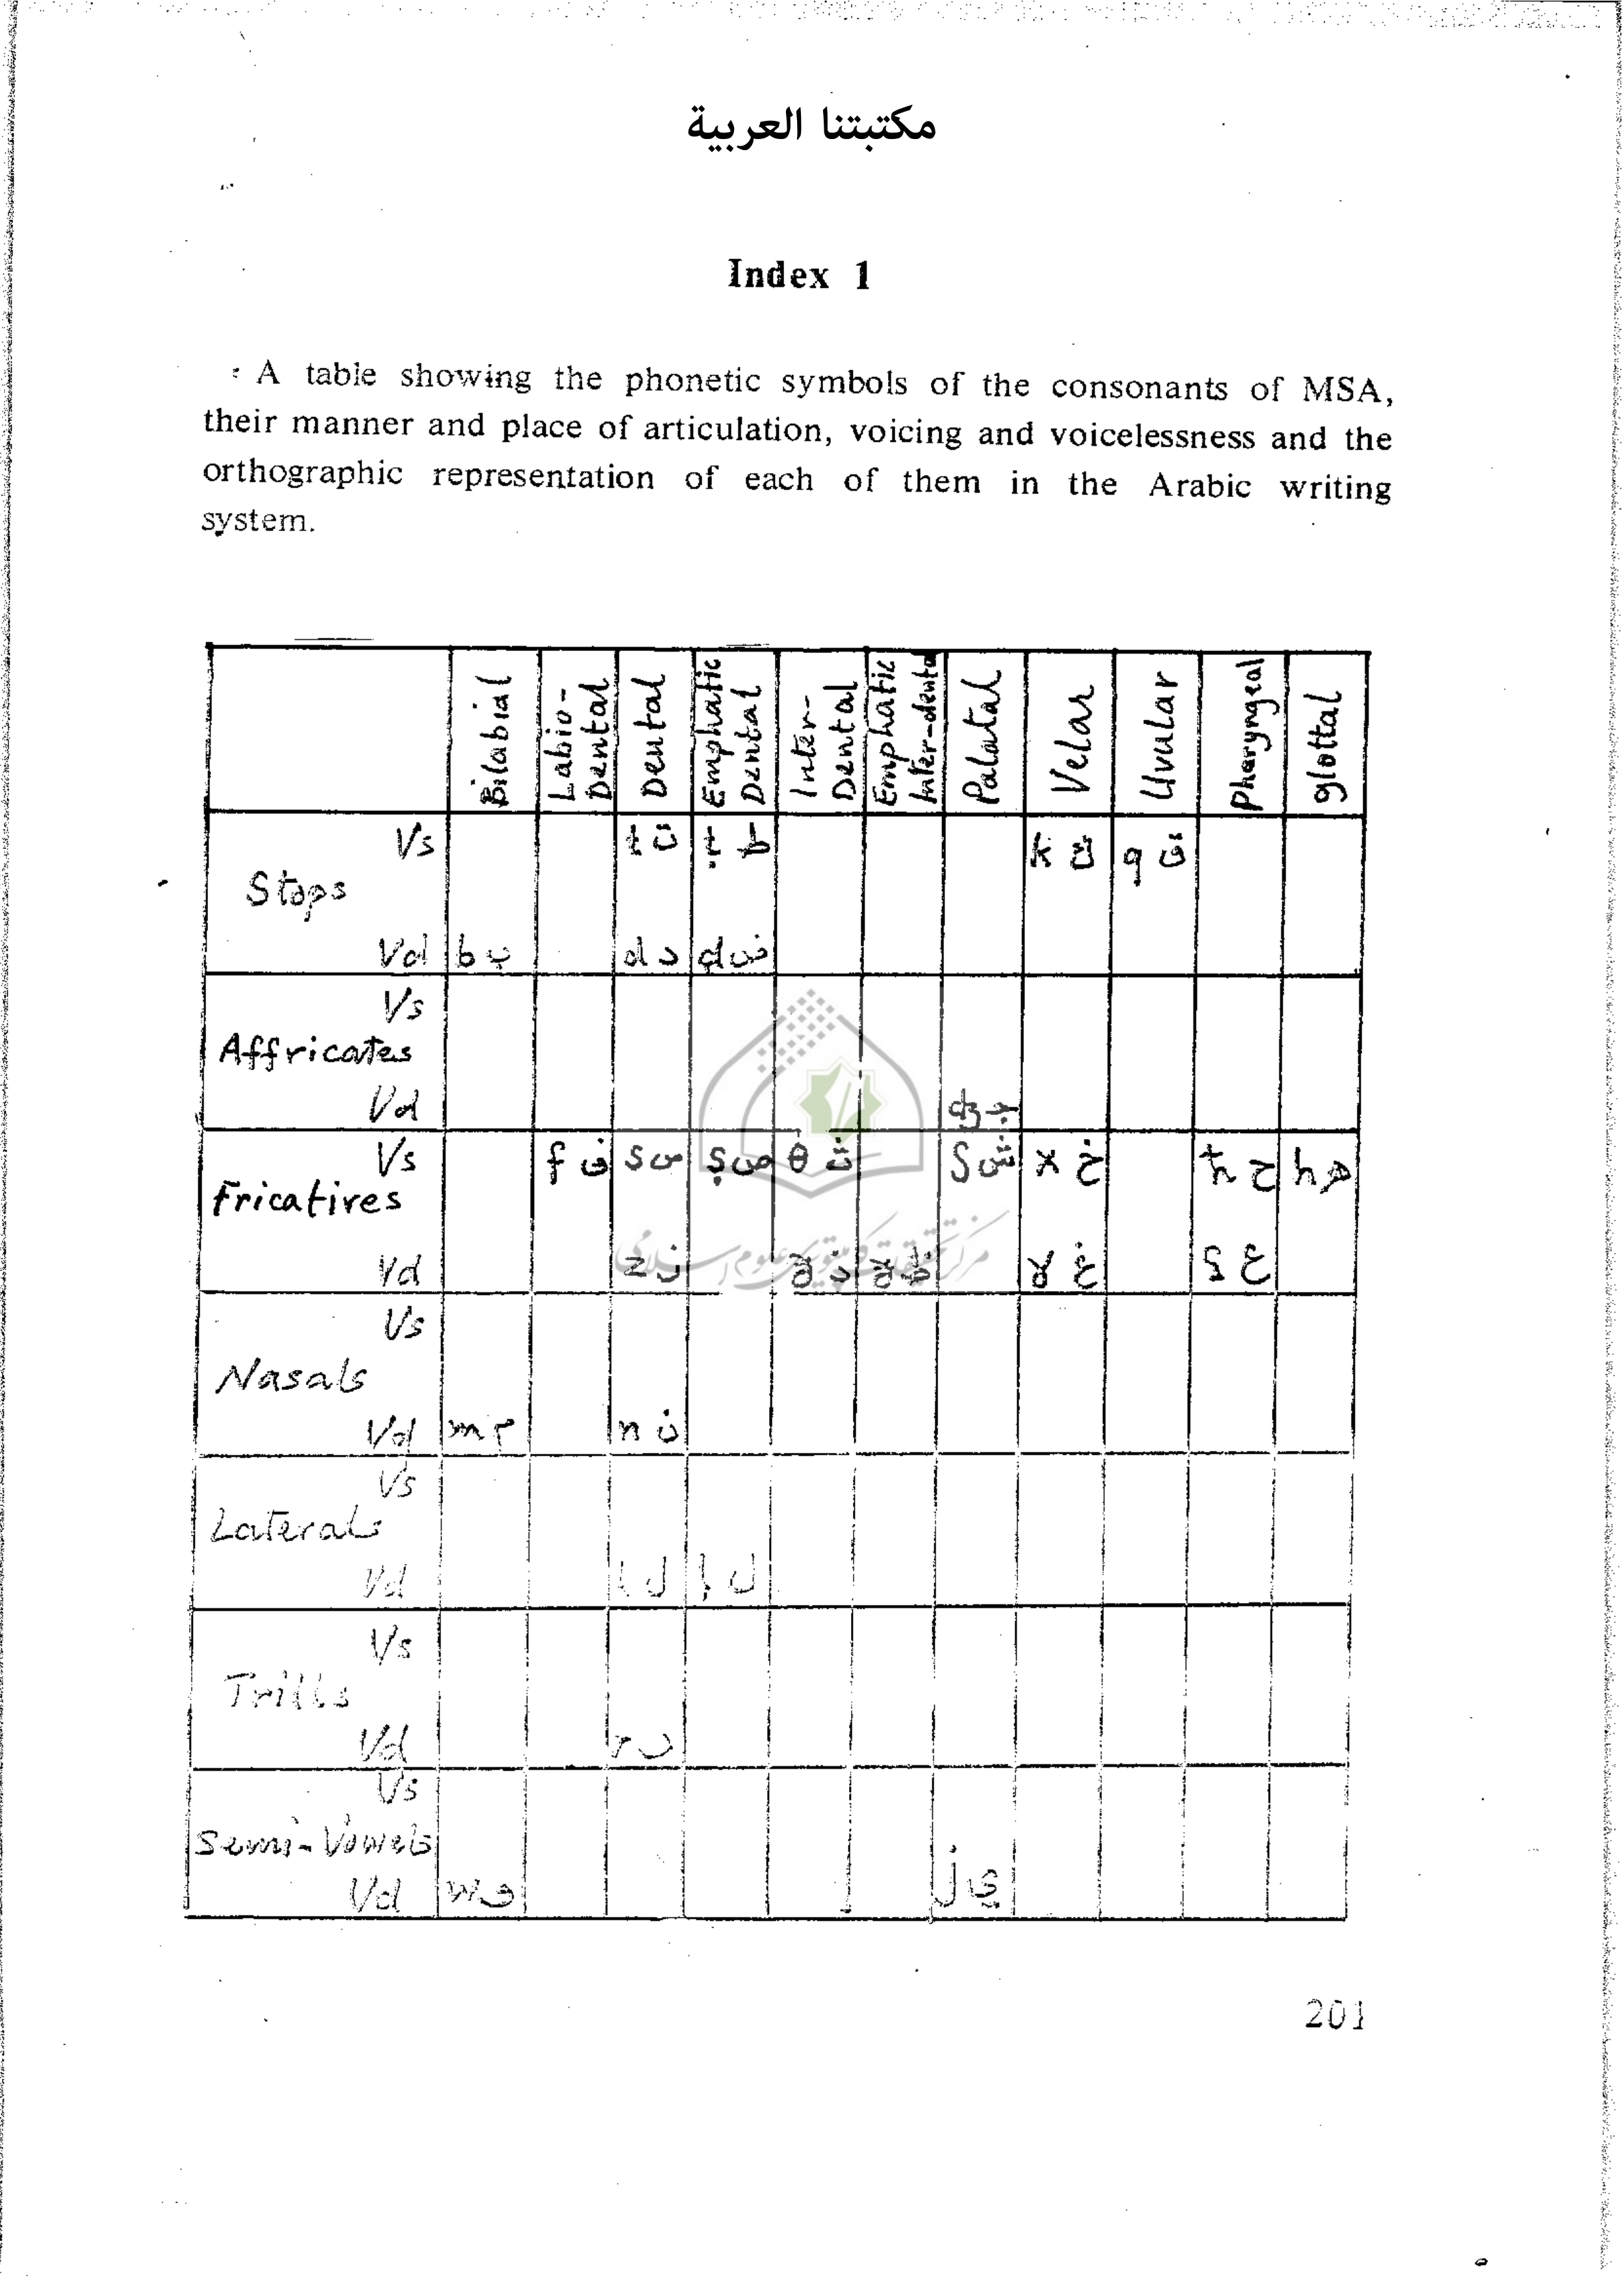 مكتبتنا العربية
Index 1
: A table showing the phonetic symbols of the consonants of MSA,
their manner and place of articulation, voicing and voicelessness and the
orthographic representation of each of them in the Arabic writing
system.
Bilabial Labio-Dental Dental Emphatic Dental Inter-Dental Emphatic Inter-dental Palatal Velar Uvular Pharyngeal glottal
Vs t ت ṭ ط k ك q ق
Stops
Vd b ب d د ḍ ض
Vs
Affricates
Vd dʒ ج
Vs f ف s س ṣ ص θ ث ʃ ش x خ ħ ح h ه
Fricatives
Vd z ز ذ ظ ɣ غ ʕ ع
Vs
Nasals
Vd m م n ن
Vs
Laterals
Vd l ل ḷ ل
Vs
Trills
Vd r ر
Vs
Semi-Vowels
Vd w و j ي
مركز تحقيقات كامپيوترى علوم اسلامى
201